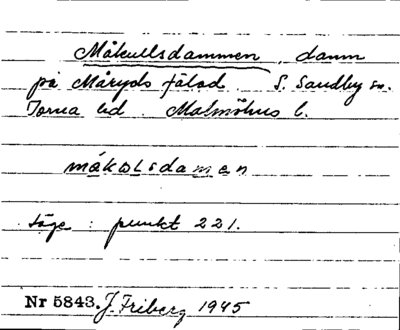 Måkullsdammen, damm
på Måryds fälad. S. Sandby sn.
Torna hd. Malmöhus l.
måkolsdamen
Läge: punkt 221.
Nr 5843. J. Friberg 1945